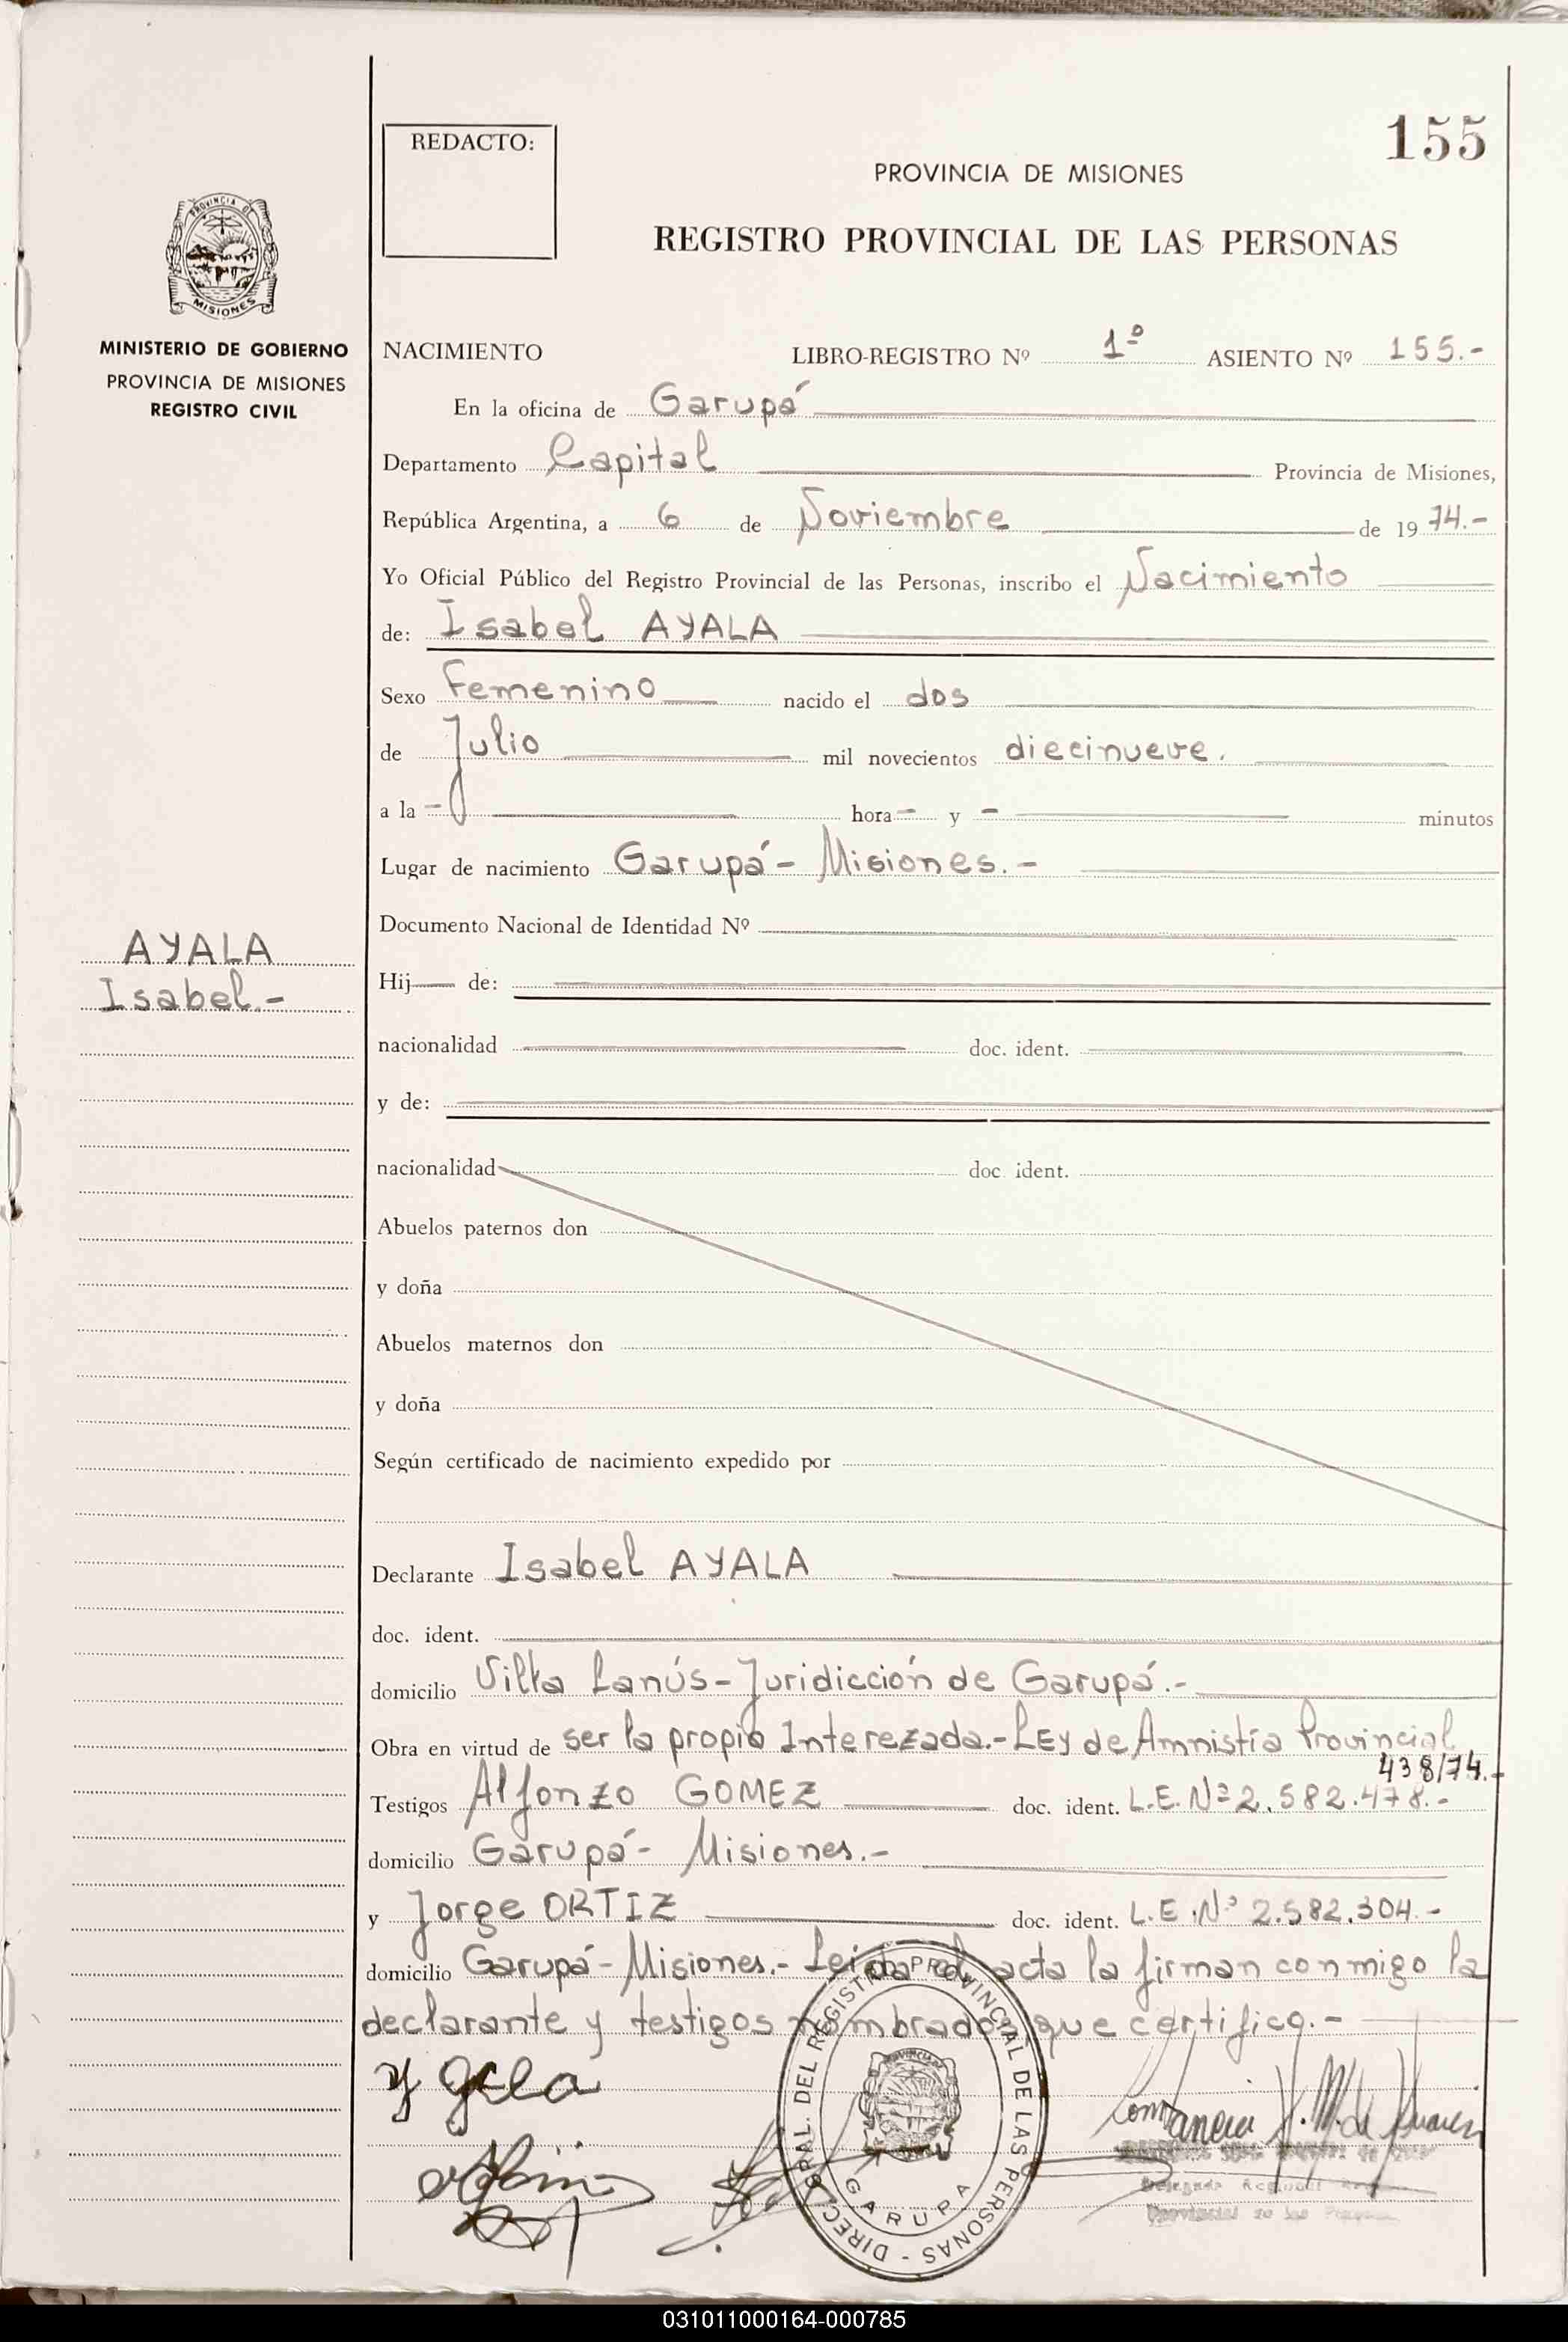 155
REDACTO:
PROVINCIA DE MISIONES
REGISTRO PROVINCIAL DE LAS PERSONAS
PROVINCIA DE
MISIONES
MINISTERIO DE GOBIERNO
PROVINCIA DE MISIONES
REGISTRO CIVIL
NACIMIENTO LIBRO-REGISTRO Nº 1º ASIENTO Nº 155.-
En la oficina de Garupá
Departamento Capital Provincia de Misiones,
República Argentina, a 6 de Noviembre de 1974.-
Yo Oficial Público del Registro Provincial de las Personas, inscribo el Nacimiento
de: Isabel AYALA
Sexo Femenino nacido el dos
de Julio mil novecientos diecinueve.
a la - hora - y - minutos
Lugar de nacimiento Garupá - Misiones.-
Documento Nacional de Identidad Nº
AYALA
Isabel.-
Hij de:
nacionalidad doc. ident.
y de:
nacionalidad doc. ident.
Abuelos paternos don
y doña
Abuelos maternos don
y doña
Según certificado de nacimiento expedido por
Declarante Isabel AYALA
doc. ident.
domicilio Villa Lanús - Juridicción de Garupá.-
Obra en virtud de ser la propia Interezada.- LEy de Amnistía Provincial
438/74.-
Testigos Alfonzo GOMEZ doc. ident. L.E. Nº 2.582.478.-
domicilio Garupá - Misiones.-
y Jorge ORTIZ doc. ident. L.E. Nº 2.582.304.-
domicilio Garupá - Misiones.- Leida el acta la firman conmigo la
declarante y testigos nombrados que certifico.-
DIRECC. GRAL. DEL REGISTRO PROVINCIAL DE LAS PERSONAS -
GARUPA
Delegada
Provincial de las
031011000164-000785